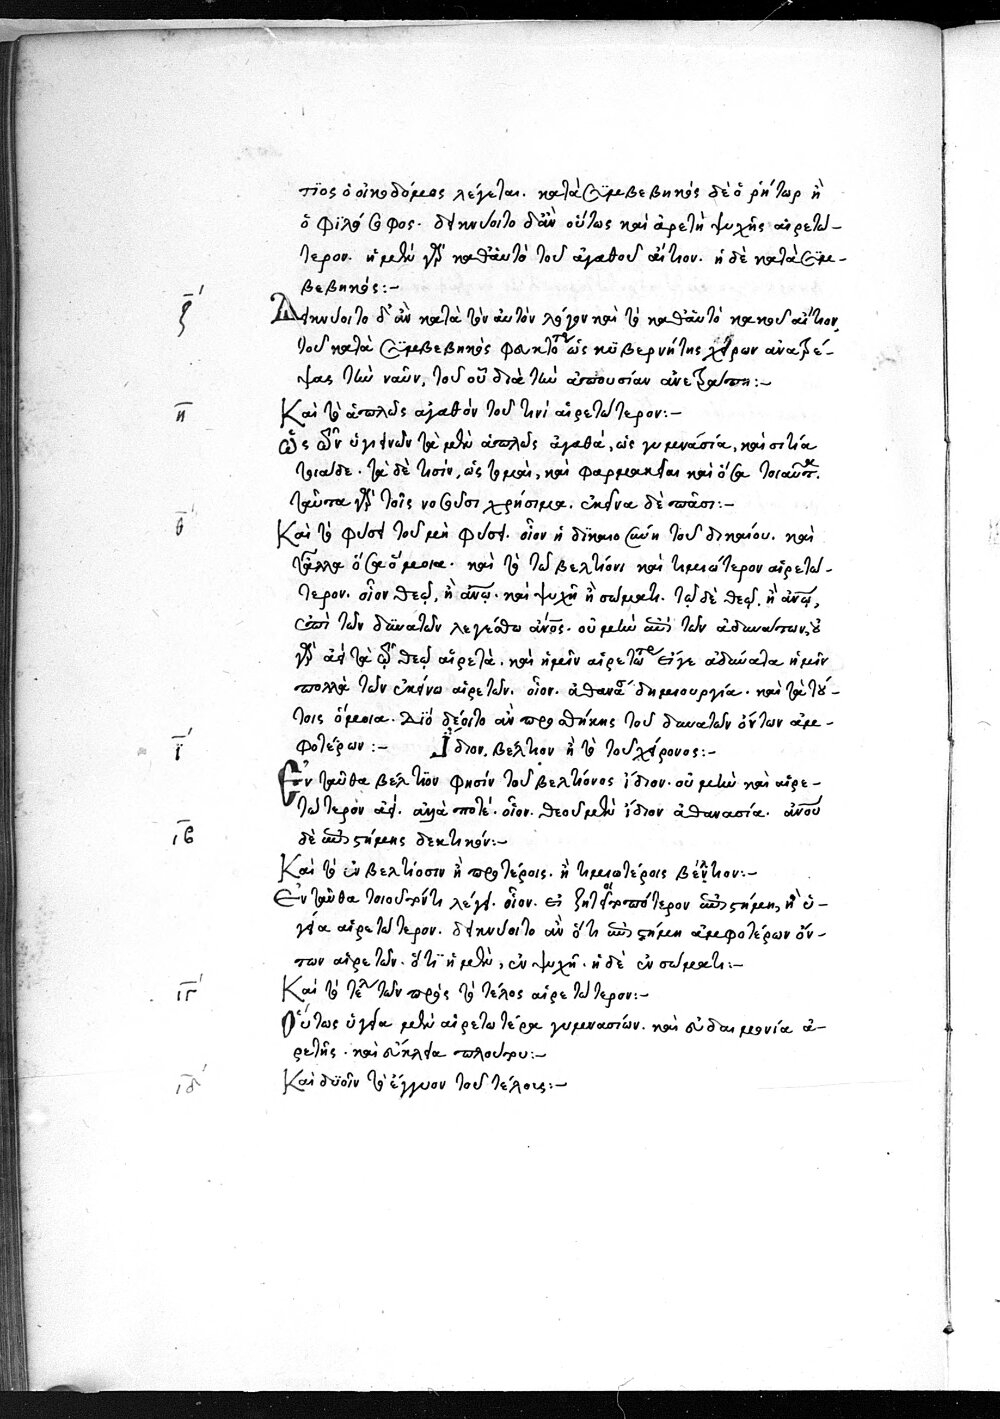 τϊος ὁ οἰκοδόμος λέγεται. κατὰ συμβεβηκὸς δὲ ὁ ῥήτωρ ἢ
ὁ φιλόσοφος. δεικνύοιτο δ' ἂν οὕτως καὶ ἀρετὴ ψυχῆς αἱρετω-
τερον. ἡ μὲν γὰρ καθ' αὑτὸ τοῦ ἀγαθοῦ αἴτιον. ἡ δὲ κατὰ συμ-
βεβηκός:-
ζ´ Δεικνύοιτο δ' ἂν κατὰ τὸν αὐτὸν λόγον καὶ τὸ καθ' αὑτὸ κακοῦ αἴτιον,
τοῦ κατὰ συμβεβηκὸς φευκτότερον ὡς κυβερνήτης χεῖρων ἀνατρέ-
ψας τὴν ναῦν, τοῦ οὗ διὰ τὴν ἀπουσίαν
η Καὶ τὸ ἁπλῶς ἀγαθὸν τοῦ τινὶ αἱρετώτερον:-
ὡς ὑγιεινῶν τὰ μὲν ἁπλῶς ἀγαθὰ, ὡς γυμνάσια, καὶ σιτία
τοιάδε. τὰ δὲ τισὶν, ὡς τομαὶ, καὶ φαρμακεῖαι καὶ ὅσα τοιαῦτα.
ταῦτα γὰρ τοῖς νοσοῦσι χρήσιμα. ἐκεῖνα δὲ πᾶσι:-
θ´ Καὶ τὸ φύσει τοῦ μὴ φύσει. οἷον ἡ δικαιοσύνη τοῦ δικαίου. καὶ
τἆλλα ὅσα ὅμοια. καὶ τὸ τῶ βελτίονι καὶ τιμιώτερον αἱρετώ-
τερον. οἷον θεῷ, ἢ ἀνῳ. καὶ ψυχῆ ἢ σώματι. τῷ δὲ θεῷ, ἢ ἀνῳ,
ἐπὶ τῶν δυνατῶν λεγέσθω ἀνος. οὐ μὴν ἐπὶ τῶν ἀδυνάτων, οὐ
γὰρ ἀεὶ τὰ τῷ θεῷ αἱρετὰ. καὶ ἡμῖν αἱρετώτερα εἴγε ἀδύνατα ἡμῖν
πολλὰ τῶν ἐκείνω αἱρετῶν. οἷον. ἀθανασία δημιουργία. καὶ τὰ τού-
τοις ὅμοια. Διὸ δέοιτο ἂν προσθήκης τοῦ δυνατῶν ὄντων ἀμ-
ι´ φοτέρων:- Ἴδιον. βέλτιον ἢ τὸ τοῦ χείρονος:-
Ἐνταῦθα βέλτιον φησὶν τοῦ βελτίονος ἴδιον. οὐ μὴν καὶ αἱρε-
τώτερον ἀεὶ. ἀλλά ποτέ. οἷον. θεοῦ μὲν ἴδιον ἀθανασία. ἀνου
ιβ δὲ ἐπιστήμης δεκτικόν:-
Καὶ τὸ ἐν βελτίοσιν ἢ προτέροις. ἢ τιμιωτέροις βέλτιον:-
Ἐνταῦθα τοιοῦτόν τι λέγει. οἷον. εἰ ζητοῖτο πότερον ἐπιστήμη, ἢ ὑ-
γεία αἱρετώτερον. δεικνύοιτο ἂν ὅτι ἐπιστήμη ἀμφοτέρων ὄν-
των αἱρετῶν. ὅτι ἡ μὲν, ἐν ψυχῆ. ἡ δὲ ἐν σώματι:-
ιγ´ Καὶ τὸ τέλος τῶν πρὸς τὸ τέλος αἱρετώτερον:-
Οὕτως ὑγεία μὲν αἱρετωτέρα γυμνασίων. καὶ εὐδαιμονία ἀ-
ρετῆς. καὶ εὔκλεια πλούτου:-
ιδ´ Καὶ δυοῖν τὸ ἔγγιον τοῦ τέλους:-